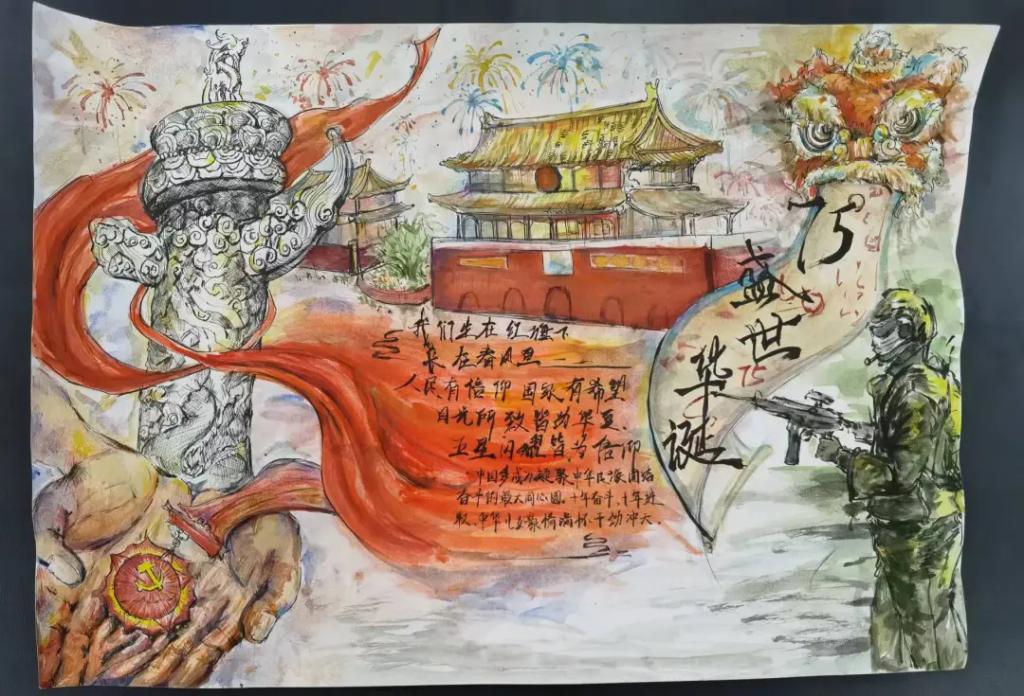 75
盛世华诞
75
我们生在红旗下
长在春风里——
人民有信仰 国家有希望
目光所致皆为华夏、
五星闪耀皆为信仰
中国梦成为凝聚中华民族团结
奋斗的最大同心圆。十年奋斗、十年进
取、中华儿女豪情满怀、干劲冲天。